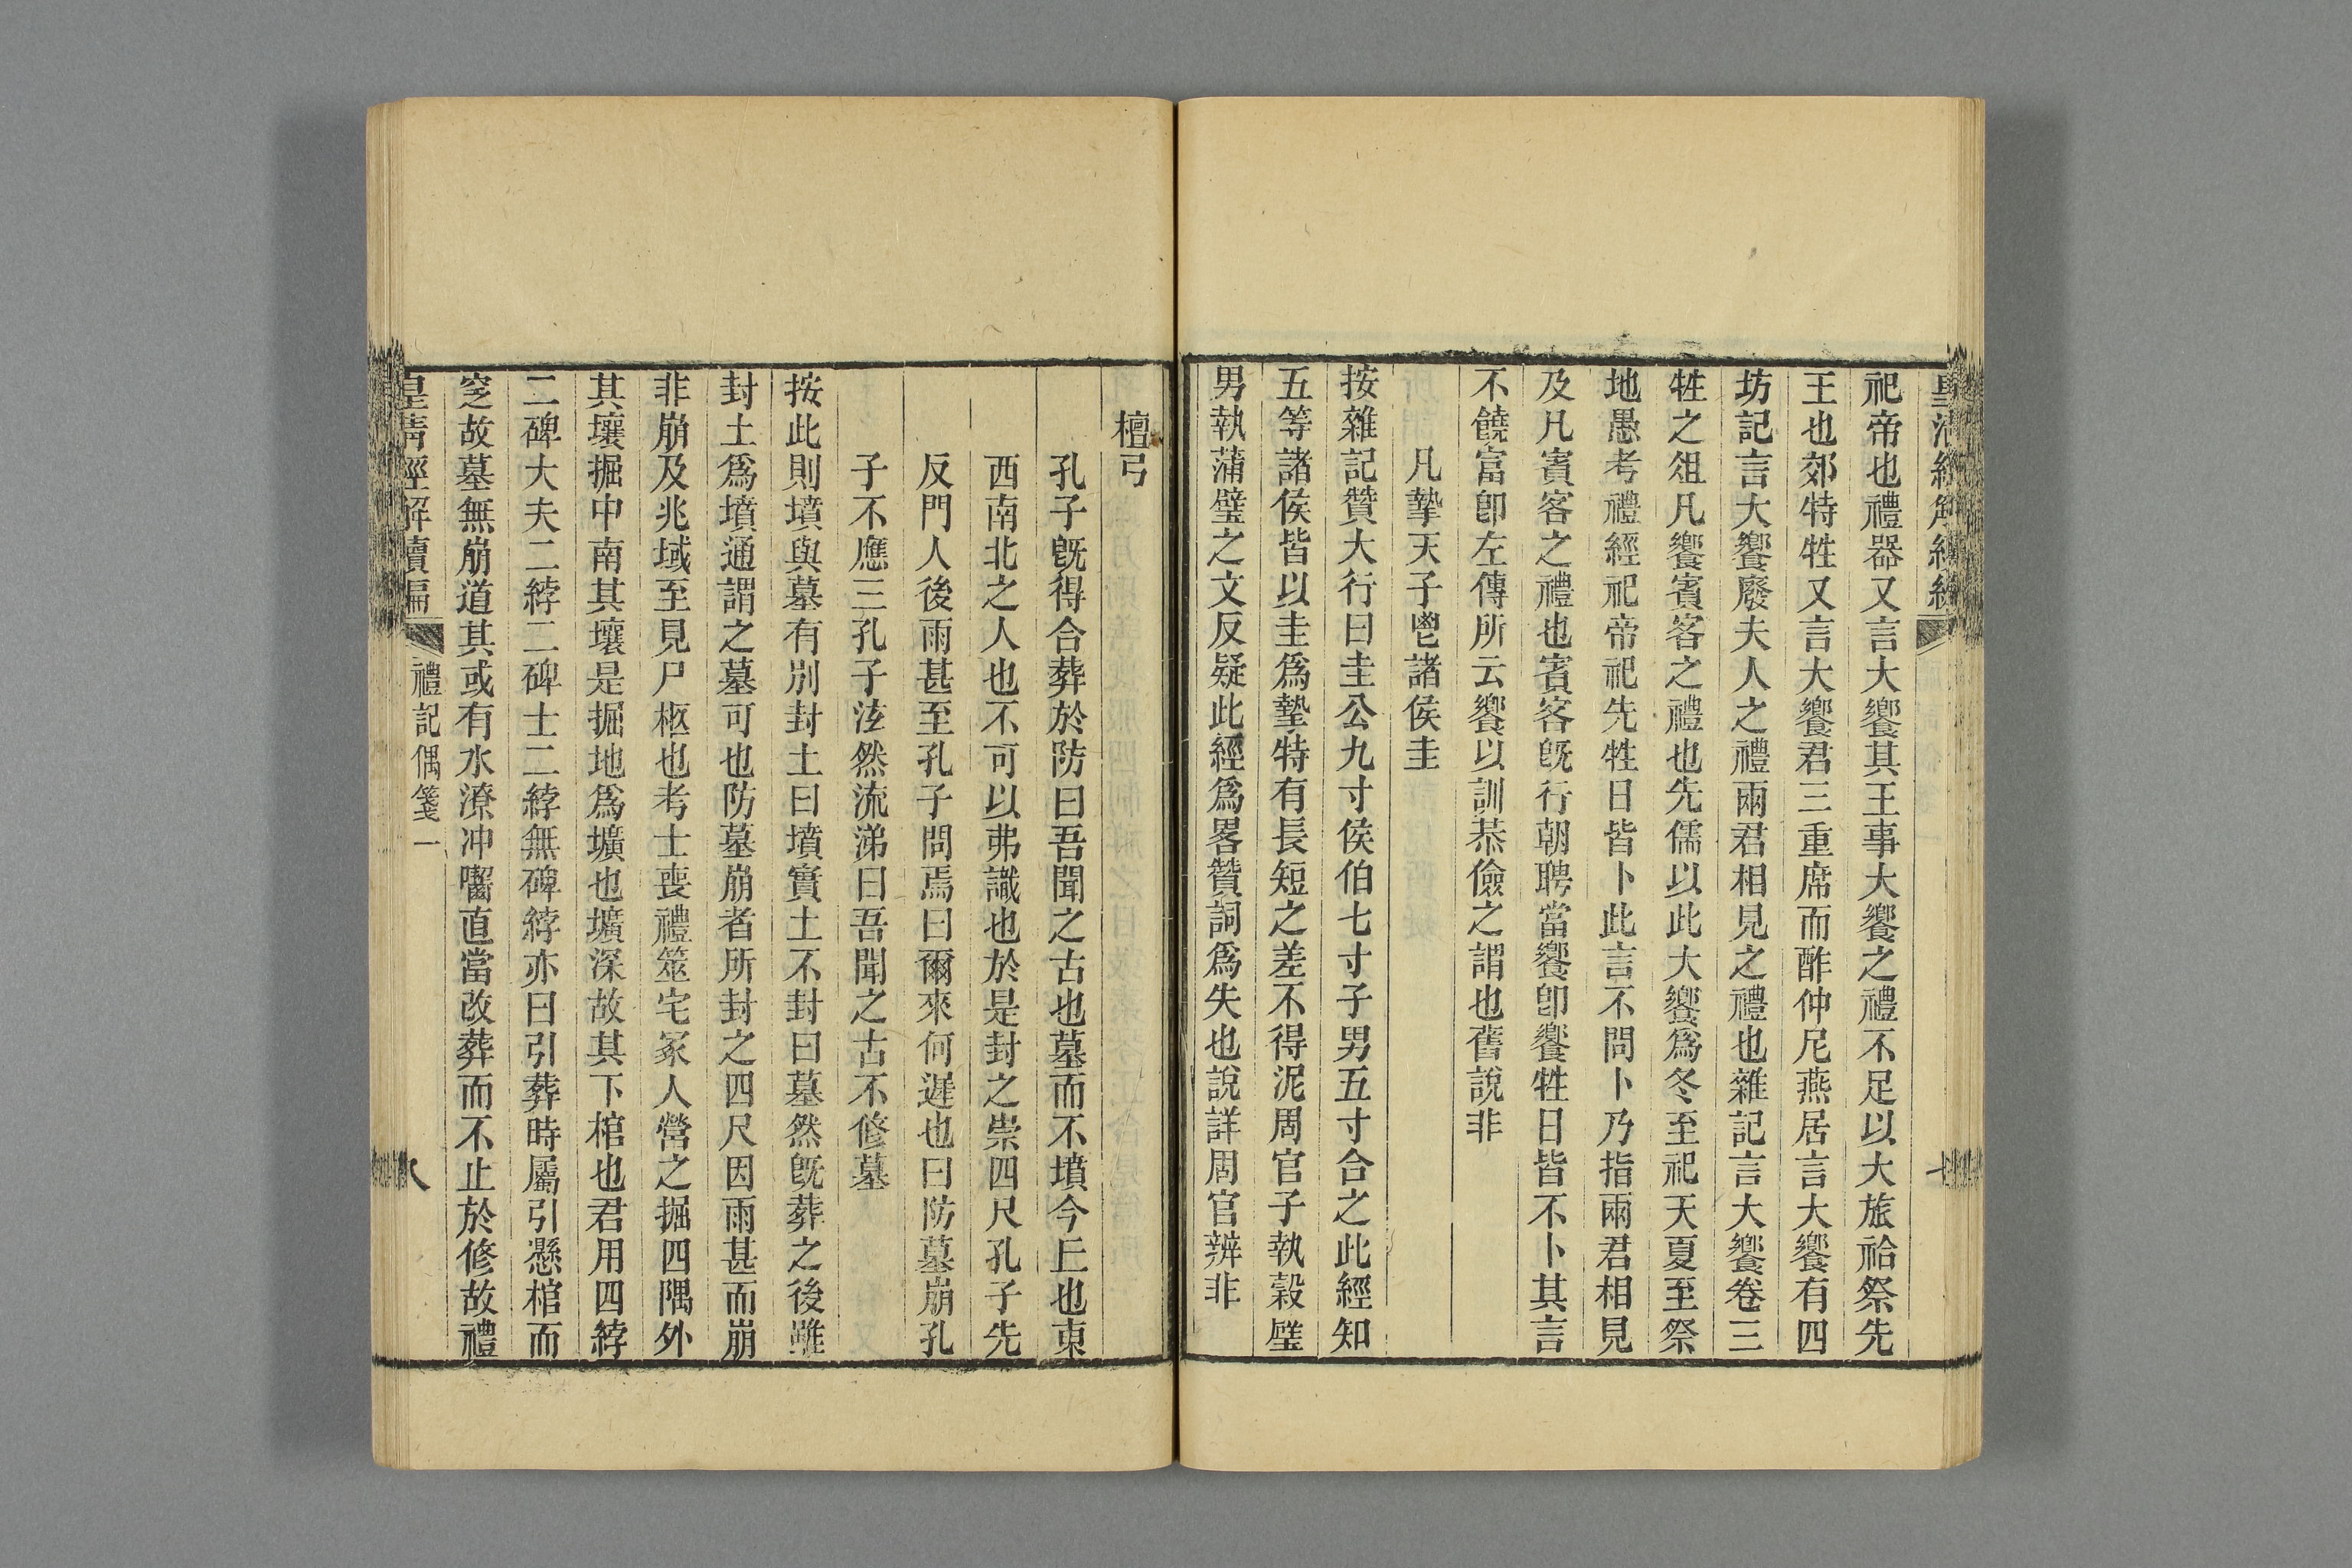 祀帝也禮器又言大饗其王事大饗之禮不足以大旅祫祭先
王也郊特牲又言大饗君三重席而酢仲尼燕居言大饗有四
坊記言大饗廢夫人之禮兩君相見之禮也雜記言大饗卷三
牲之俎凡饗賓客之禮也先儒以此大饗爲冬至祀天夏至祭
地愚考禮經祀帝祀先牲日皆卜此言不問卜乃指兩君相見
及凡賓客之禮也賓客旣行朝聘當饗卽饗牲日皆不卜其言
不饒富卽左傳所云饗以訓恭儉之謂也舊說非
凡摯天子鬯諸侯圭
按雜記贊大行曰圭公九寸侯伯七寸子男五寸合之此經知
五等諸侯皆以圭爲摯特有長短之差不得泥周官子執穀璧
男執蒲璧之文反疑此經爲畧贊詞爲失也說詳周官辨非
檀弓
孔子旣得合葬於防曰吾聞之古也墓而不墳今丘也東
西南北之人也不可以弗識也於是封之崇四尺孔子先
反門人後雨甚至孔子問焉曰爾來何遲也曰防墓崩孔
子不應三孔子泫然流涕曰吾聞之古不修墓
按此則墳與墓有別封土曰墳實土不封曰墓然旣葬之後雖
封土爲墳通謂之墓可也防墓崩者所封之四尺因雨甚而崩
非崩及兆域至見尸柩也考士喪禮筮宅冢人營之掘四隅外
其壤掘中南其壤是掘地爲壙也壙深故其下棺也君用四綍
二碑大夫二綍二碑士二綍無碑綍亦曰引葬時屬引懸棺而
窆故墓無崩道其或有水潦冲囓直當改葬而不止於修故禮
皇清經解續編
禮記偶箋一
八